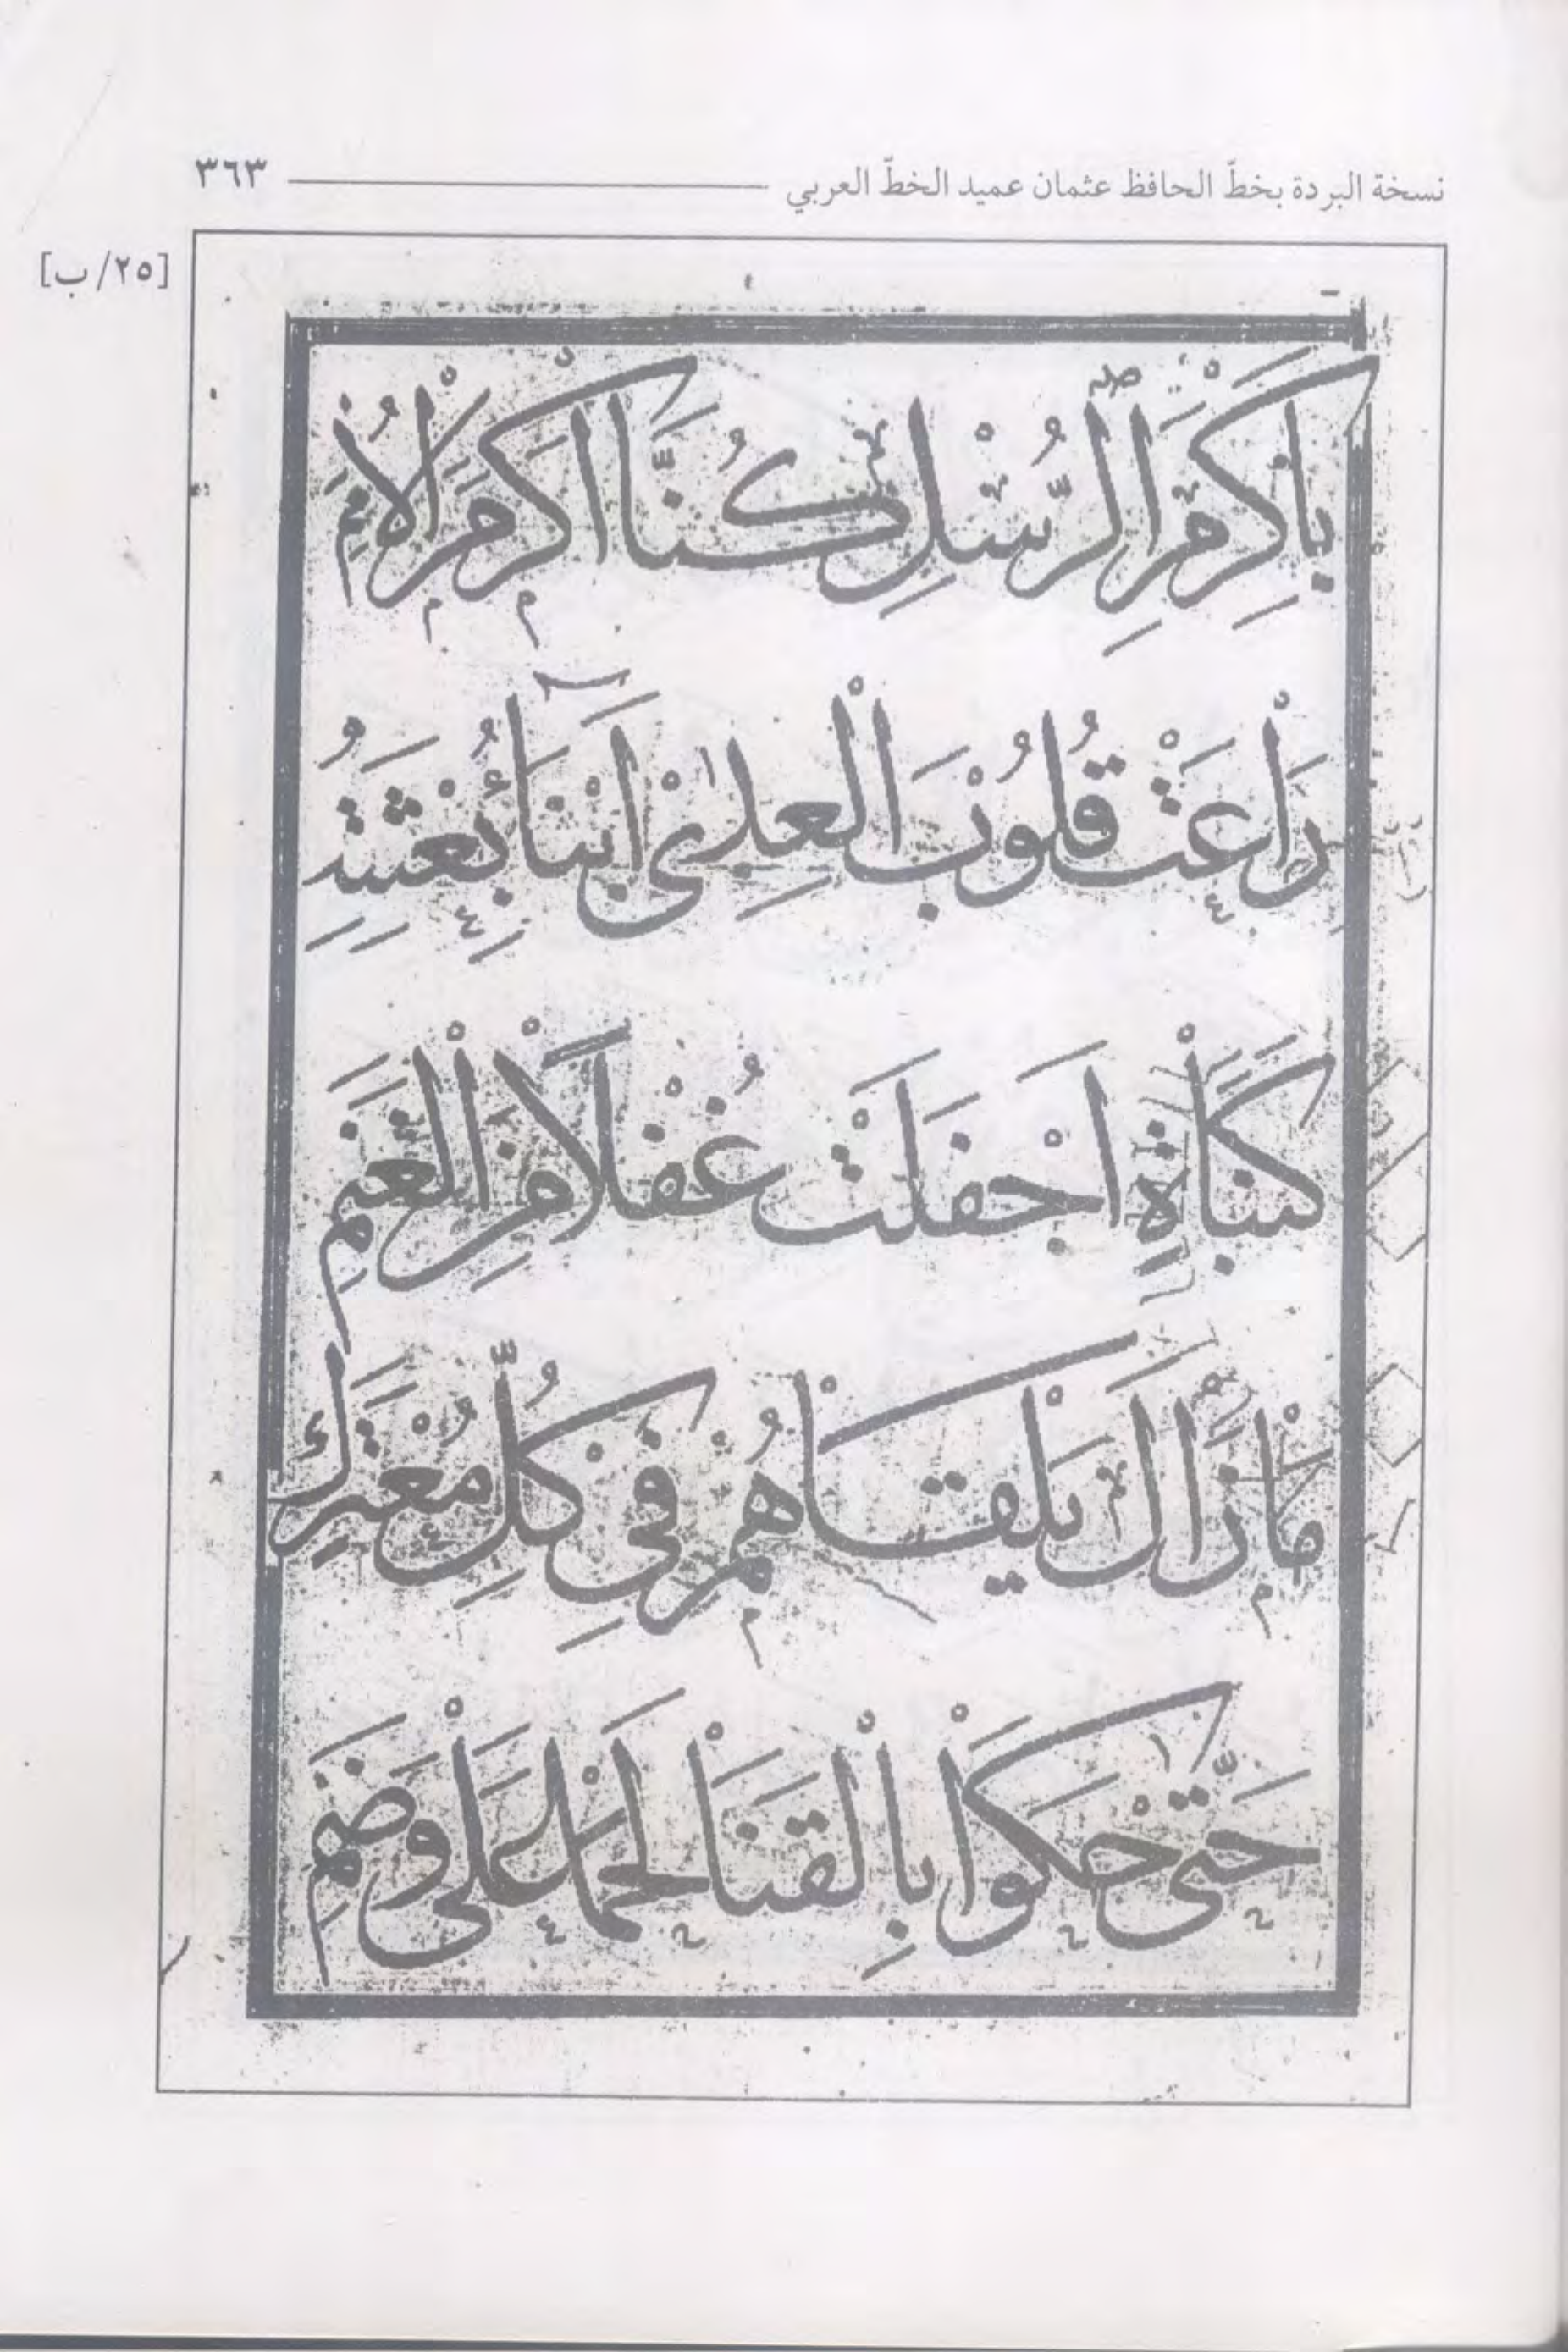 نسخة البردة بخطّ الحافظ عثمان عميد الخطّ العربي ٣٦٣
[٢٥/ب]
بِاَكْرَمِ الرُّسْلِ كُنَّا اَكْرَمَ الْاُمَمِ
رَاعَتْ قُلُوْبَ الْعِدٰى اَنْبَآءُ بِعْثَتِهِ
كَنَبْاَةٍ اَجْفَلَتْ غُفْلًا مِنَ الْغَنَمِ
مَازَالَ يَلْقَاهُمْ فِى كُلِّ مُعْتَرَكٍ
حَتّٰى حَكَوْا بِالْقَنَا لَحْمًا عَلَى وَضَمِ